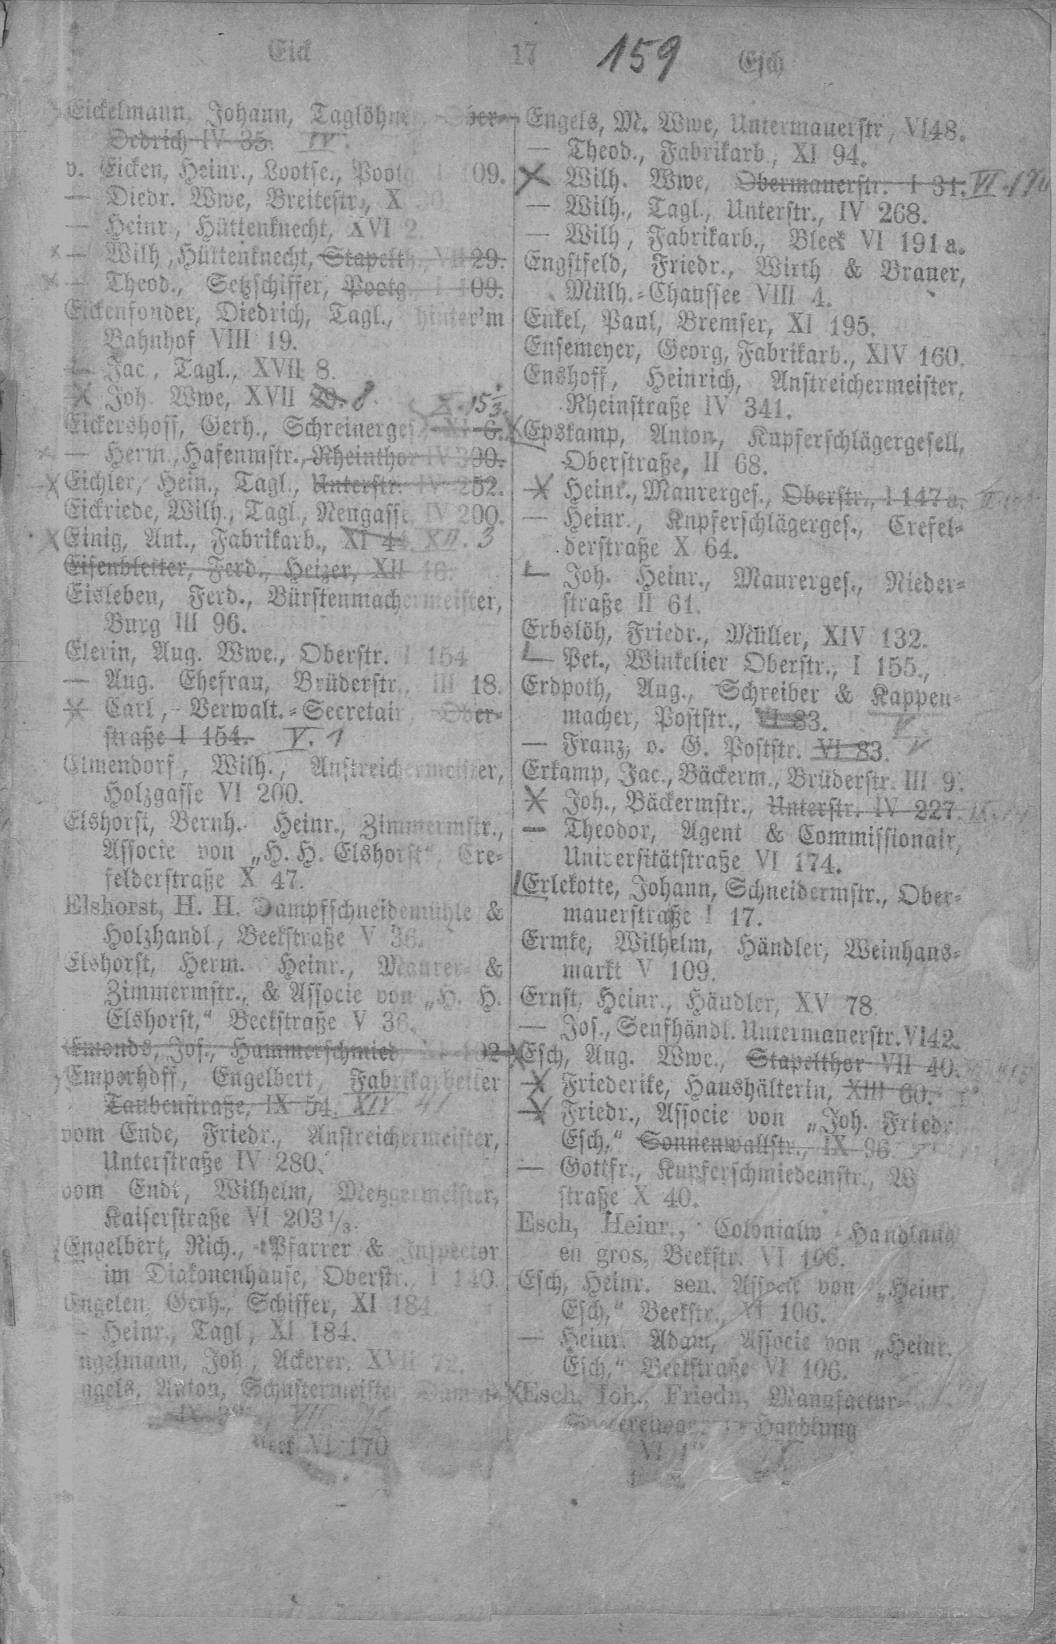 Eick 17 159 Esch
Eickelmann, Johann, Taglöhner, Ober-
Oedrich IV 35. IV.
v. Eicken, Heinr., Lootse., Pootg. I 109.
— Diedr. Wwe, Breitestr., X
— Heinr., Hüttenknecht, XVI 2.
× — Wilh., Hüttenknecht, Stapelth., VII 29.
× — Theod., Setzschiffer, Pootg., I 109.
Eickenfonder, Diedrich, Tagl., hinter'm
Bahnhof VIII 19.
— Jac., Tagl., XVII 8.
× Joh. Wwe, XVII 8.
Eickershoff, Gerh., Schreinerges., XI 6. X. 15 1/3.
— Herm., Hafenmstr., Rheinthor IV 390.
× Eichler, Hein., Tagl., Unterstr. IV 252.
Eickriede, Wilh., Tagl., Neugasse IV 200.
× Einig, Ant., Fabrikarb., XI 44. XII. 3
Eisenbletter, Ferd., Heizer, XII 16.
Eisleben, Ferd., Bürstenmachermeister,
Burg III 96.
Elerin, Aug. Wwe., Oberstr. I 154
— Aug. Ehefrau, Brüderstr., III 18.
× Carl, Verwalt.-Secretair, Ober-
straße I 154. V. 1
Elmendorf, Wilh., Anstreichermeister,
Holzgasse VI 200.
Elshorst, Bernh. Heinr., Zimmermstr.,
Associe von „H. H. Elshorst“, Cre-
felderstraße X 47.
Elshorst, H. H. Dampfschneidemühle &
Holzhandl., Beekstraße V 36.
Elshorst, Herm. Heinr., Maurer- &
Zimmermstr., & Associe von „H. H.
Elshorst,“ Beekstraße V 36.
Emonds, Jos., Hammerschmied,
Emperhoff, Engelbert, Fabrikarbeiter
Taubenstraße, IX 54. XIV 41
vom Ende, Friedr., Anstreichermeister,
Unterstraße IV 280.
vom Endt, Wilhelm, Metzgermeister,
Kaiserstraße VI 203 1/3.
Engelbert, Rich., Pfarrer & Inspector
im Diakonenhause, Oberstr., I 140.
Engelen, Gerh., Schiffer, XI 184.
— Heinr., Tagl., XI 184.
ngelmann, Joh., Ackerer, XVII 72.
ngels, Anton, Schustermeister
VI 170
Engels, M. Wwe, Untermauerstr., VI 48.
— Theod., Fabrikarb., XI 94.
× Wilh. Wwe, Obermauerstr. I 31. VI. 170
— Wilh., Tagl., Unterstr., IV 268.
— Wilh., Fabrikarb., Bleek VI 191a.
Engstfeld, Friedr., Wirth & Brauer,
Mülh.-Chaussee VIII 4.
Enkel, Paul, Bremser, XI 195.
Ensemeyer, Georg, Fabrikarb., XIV 160.
Enshoff, Heinrich, Anstreichermeister,
Rheinstraße IV 341.
× Epskamp, Anton, Kupferschlägergesell,
Oberstraße, II 68.
× Heinr., Maurerges., Oberstr., I 147a.
— Heinr., Kupferschlägerges., Crefel-
derstraße X 64.
— Joh. Heinr., Maurerges., Nieder-
straße II 61.
Erbslöh, Friedr., Müller, XIV 132.
— Pet., Winkelier Oberstr., I 155.,
Erdpoth, Aug., Schreiber & Kappen-
macher, Poststr., VI 83. V.
— Franz, o. G. Poststr. VI 83. V
Erkamp, Jac., Bäckerm., Brüderstr. III 9.
× Joh., Bäckermstr., Unterstr. IV 227.
— Theodor, Agent & Commissionair,
Universitätstraße VI 174.
Erlekotte, Johann, Schneidermstr., Ober-
mauerstraße I 17.
Ermke, Wilhelm, Händler, Weinhaus-
markt V 109.
Ernst, Heinr., Händler, XV 78.
— Jos., Senfhändl. Untermauerstr. VI 42.
× Esch, Aug. Wwe., Stapelthor VII 40.
× Friederike, Haushälterin, XIII 60.
× Friedr., Associe von „Joh. Friedr.
Esch,“ Sonnenwallstr., IX 96.
— Gottfr., Kupferschmiedemstr., W
straße X 40.
Esch, Heinr., Colonialw.-Handlung
en gros, Beekstr. VI 106.
Esch, Heinr. sen. Associe von „Heinr.
Esch,“ Beekstr., VI 106.
— Heinr. Adam, Associe von „Heinr.
Esch,“ Beekstraße VI 106.
× Esch, Joh. Friedr., Manufactur-
Handlung